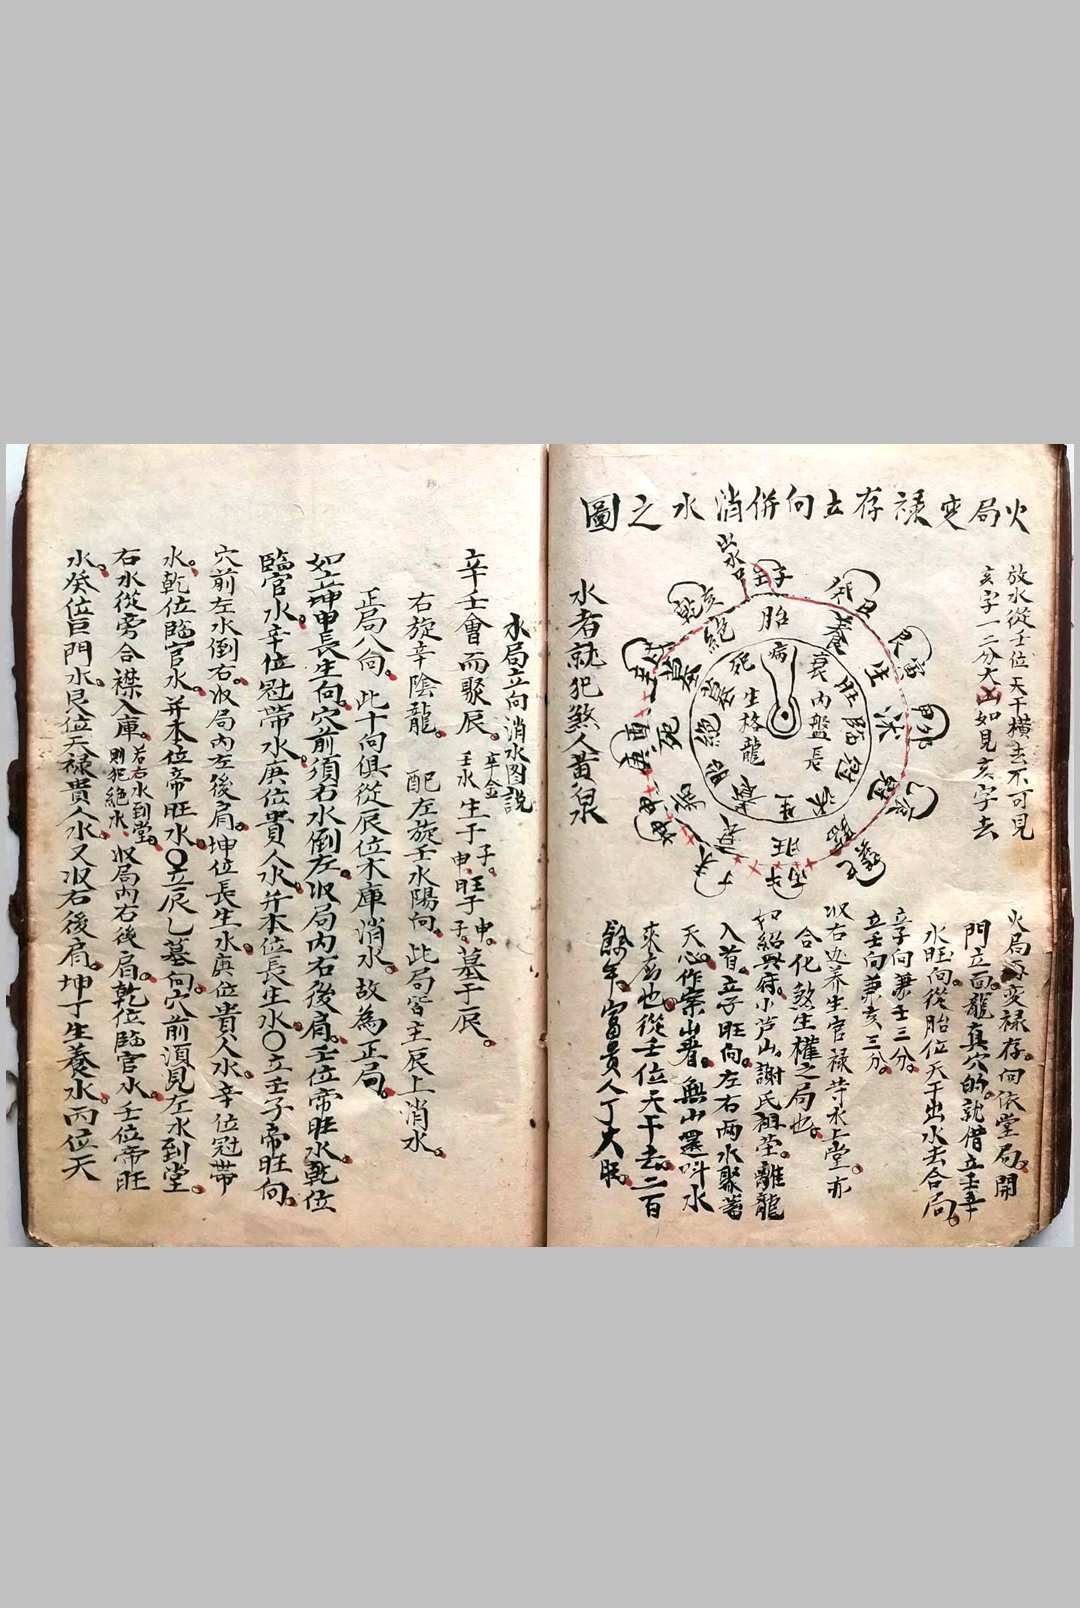 火局变禄存立向併消水之圖
放水從壬位天干横去不可見
亥字一二分大凶如見亥字去
水者就犯煞人黄泉
壬子
癸丑
艮寅
甲卯
乙辰
巽巳
丙午
丁未
坤申
庚酉
辛戌
乾亥
胎
養
生
沐
冠
臨
旺
衰
病
死
墓
絶
内盤長
生格龍
火局再变禄存向依堂局開
門立面龍真穴的就借立壬辛
水旺向從胎位天干出水去合局
辛向兼壬三分
立壬向兼亥三分
收右边养生官禄等水上堂亦
合化煞生權之局也
如紹興府小芦山謝氏祖茔離龍
入首立子旺向左右两水聚蓄
天心作案出普無山還叫水
來局也從壬位天干去二百
餘年富貴人丁大旺
水局立向消水图説
辛壬會而聚辰
辛金生子旺申墓于辰
壬水生申旺子
右旋辛陰龍 配左旋壬水陽向此局皆主辰上消水
正局八向此十向俱從辰位木庫消水故為正局
如立坤申長生向穴前須右水倒左收局内右後肩壬位帝旺水乾位
臨官水辛位冠帶水庚位貴人水并本位長生水〇立壬子帝旺向
穴前左水倒右收局内左後肩坤位長生水庚位貴人水辛位冠帶
水乾位臨官水并本位帝旺水〇立辰乙墓向穴前須見左水到堂
右水從旁合襟入庫若右水到堂則犯絶水收局内右後肩乾位臨官水壬位帝旺
水癸位巨門水艮位天禄貴人水又收右後肩坤丁生養水丙位天